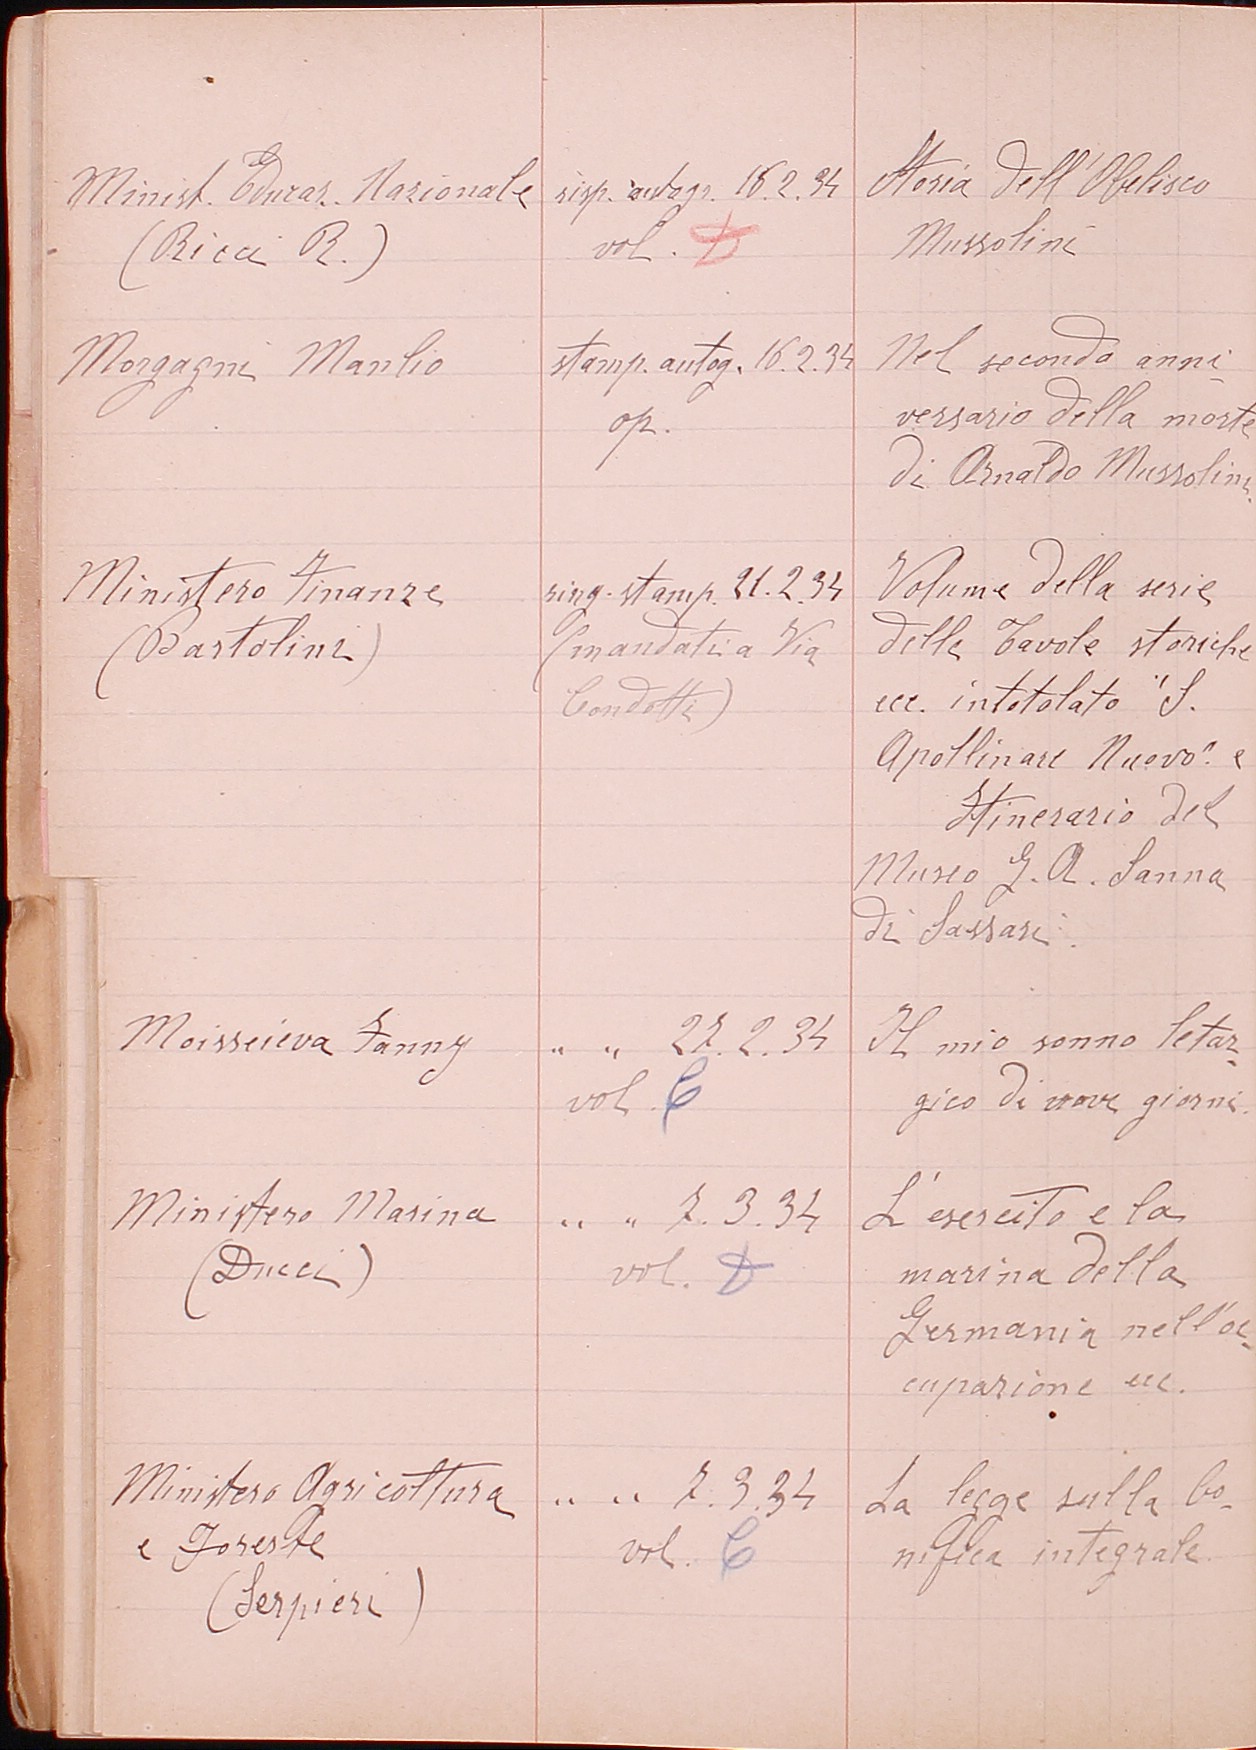 Minist. Educaz. Nazionale risp. autogr. 16.2.34 Storia dell'Obelisco
(Ricci R.) vol. D Mussolini
Morgagni Manlio stamp. autog. 16.2.34 Nel secondo anni-
op. versario della morte
di Arnaldo Mussolini.
Ministero Finanze ring. stamp. 21.2.34 Volume della serie
(Bartolini) (mandati a Via delle Tavole storiche
Condotti) ecc. intotolato "S.
Apollinare Nuovo" e
Itinerario del
Museo G. A. Sanna
di Sassari.
Moisseieva Fanny " " 27.2.34 Il mio sonno letar-
vol. C gico di nove giorni.
Ministero Marina " " 7.3.34 L'esercito e la
(Ducci) vol. D marina della
Germania nell'oc-
cupazione ecc.
Ministero Agricoltura " " 7.3.34 La legge sulla bo-
e Foreste vol. C nifica integrale.
(Serpieri)